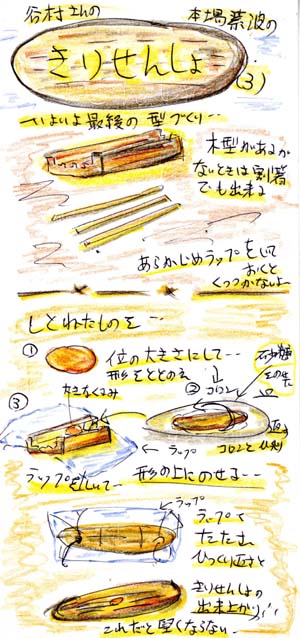 谷村さんの
本場葉波の
きりせんしょ
(3)
いよいよ最後の型づくり・・
木型があるが
ないときは割箸
でも出来る
あらかじめラップをしいて
おくと
くっつかないよ
しとねたものを・・
①
位の大きさにして・・
形をととのえ
②
コロン
砂糖
③
大きなくるみ
ラップ
コロンと
ラップをしいて・・
形の上にのせる・・
ラップ
ラップで
たたむ
ひっくり返すと
きりせんしょの
出来上がり
これだと堅くならない